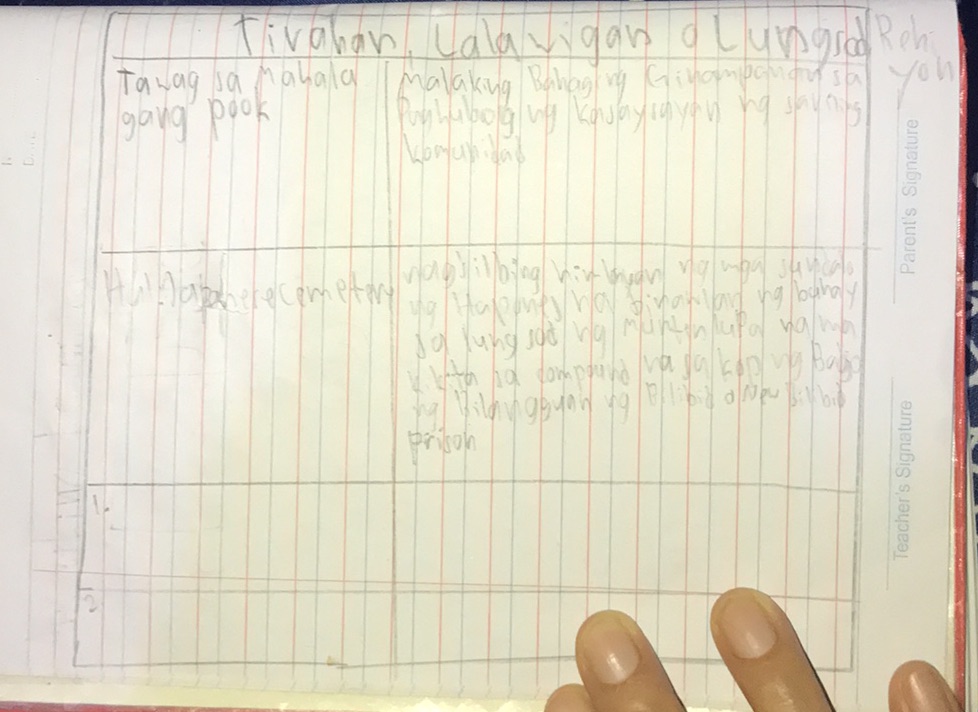 Tirahan, Lalawigan o Lungsod Rehi
yon
Tawag sa Mahala
gang pook
Malaking Bahaging Ginampanan sa
Paghubog ng kasaysayan ng sariling
komunidad
cemetery
nagsilbing himlayan ng mga sundalo
ng Hapones na binawian ng buhay
sa lungsod ng Muntinlupa na ma
kikita sa compound na sakop ng Bago
ng Bilangguan ng Bilibid o new Bilibid
prison
1.
2
Parent's Signature
Teacher's Signature